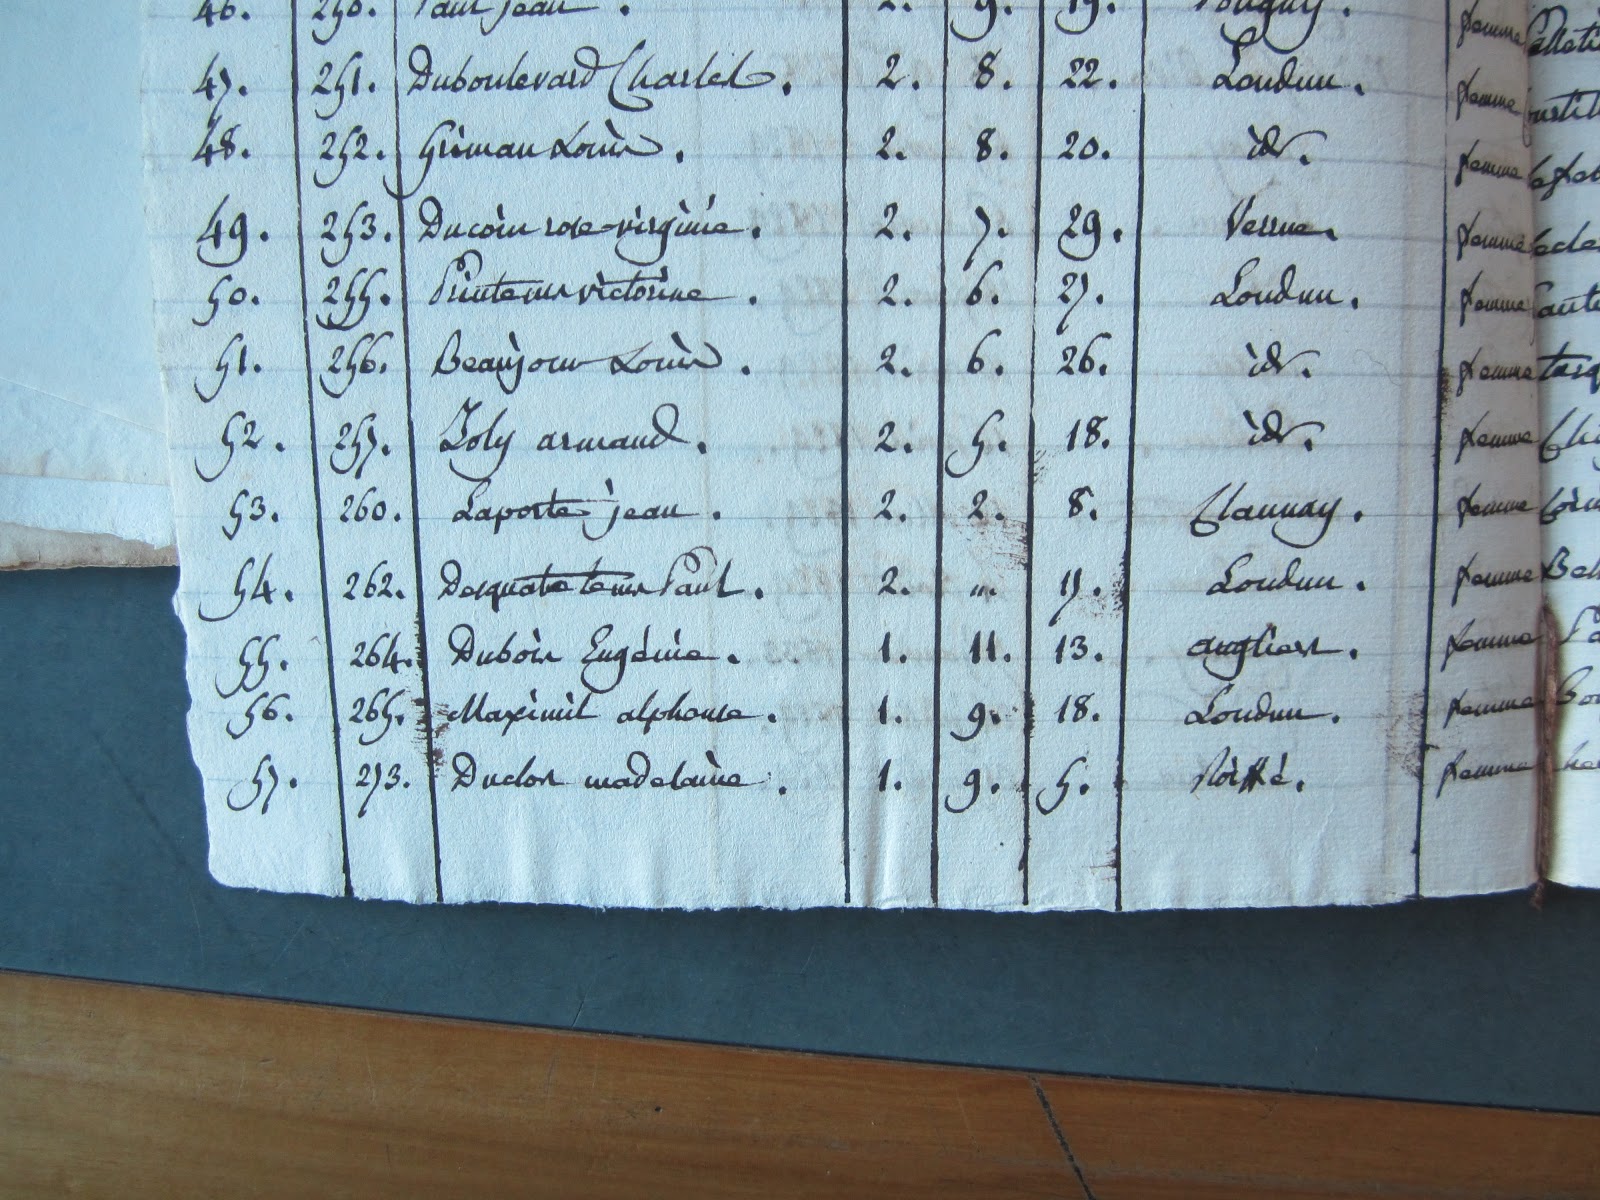 46. 250. Paul jean. 2. 9. 19. femme
47. 251. Duboulevard Charles. 2. 8. 22. Loudun. femme
48. 252. Louis. 2. 8. 20. id. femme
49. 253. Ducoin rose-virginie. 2. 7. 29. Verrue. femme
50. 255. Printems victorine. 2. 6. 27. Loudun. femme
51. 256. Beaujour Louis. 2. 6. 26. id. femme
52. 257. Joly armand. 2. 5. 18. id. femme
53. 260. Laporte jean. 2. 2. 8. Claunay. femme
54. 262. Desquatretems Paul. 2. „. 17. Loudun. femme
55. 264. Dubois Eugénie. 1. 11. 13. angliers. femme
56. 265. Maximil alphonse. 1. 9. 18. Loudun. femme
57. 273. Duclos madelaine. 1. 9. 5. Roiffé. femme